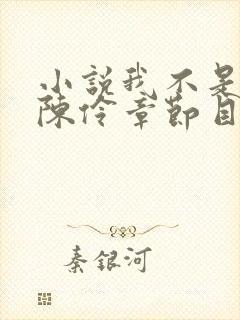 小說我不是
陳伶章節目
秦銀河